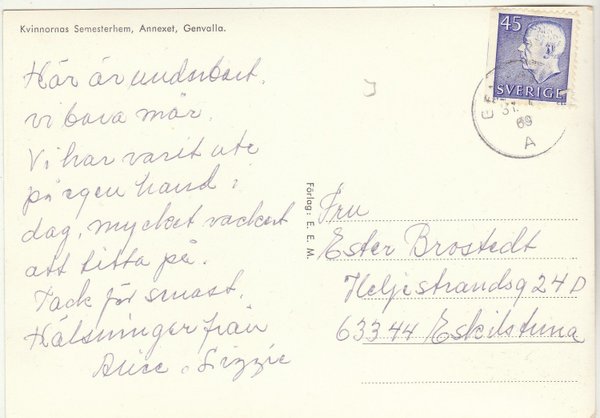 Kvinnornas Semesterhem, Annexet, Genvalla.
45
SVERIGE
31.
69
A
Här är underbart,
vi bara mår.
Vi har varit ute
på egen hand i
dag, mycket vackert
att titta på.
Tack för smast.
Hälsningar från
Alice, Lizzie
Förlag: E. E. M.
Fru
Ester Brostedt
Heljestrandsg 24 D
633 44 Eskilstuna